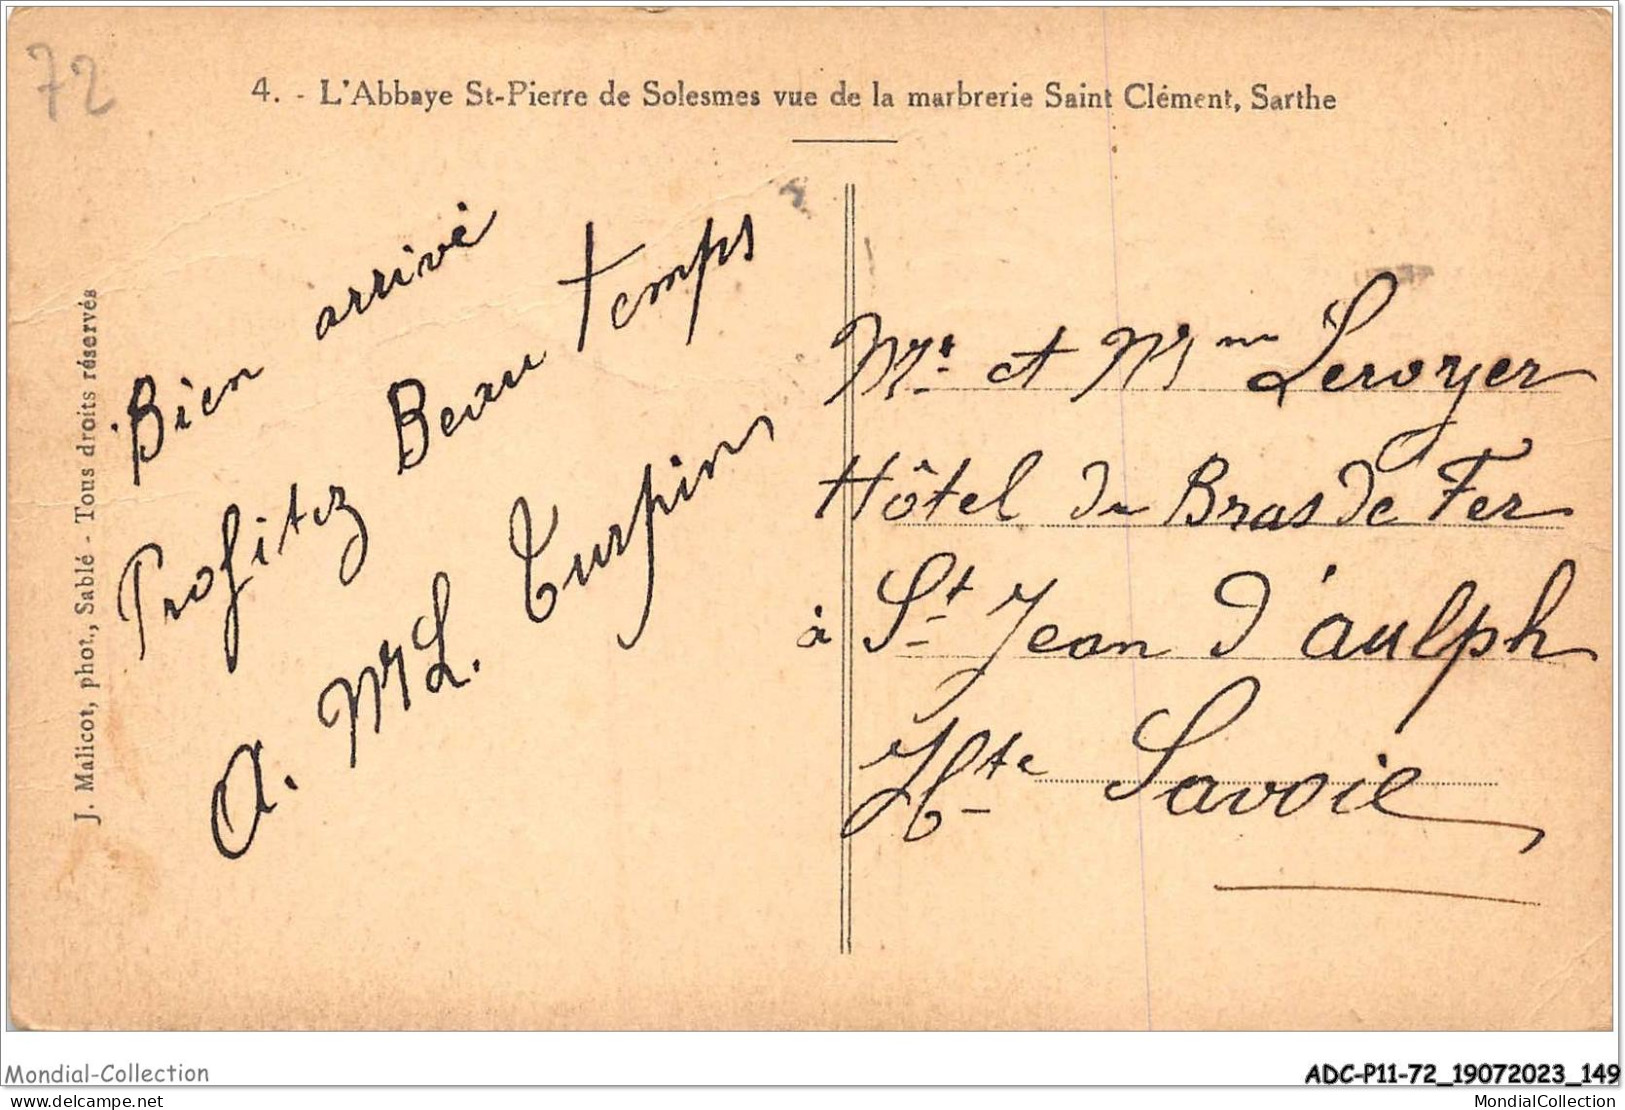 72
4. - L'Abbaye St-Pierre de Solesmes vue de la marbrerie Saint Clément, Sarthe
J. Malicot, phot., Sablé - Tous droits réservés
Bien arrivé
Profitez Beau temps
A. ML. Turpin
Mr. et Mme Leroyer
Hôtel du Bras de Fer
à St Jean d'aulph
Hte Savoie
Mondial-Collection
ADC-P11-72_19072023_149
delcampe.net
MondialCollection